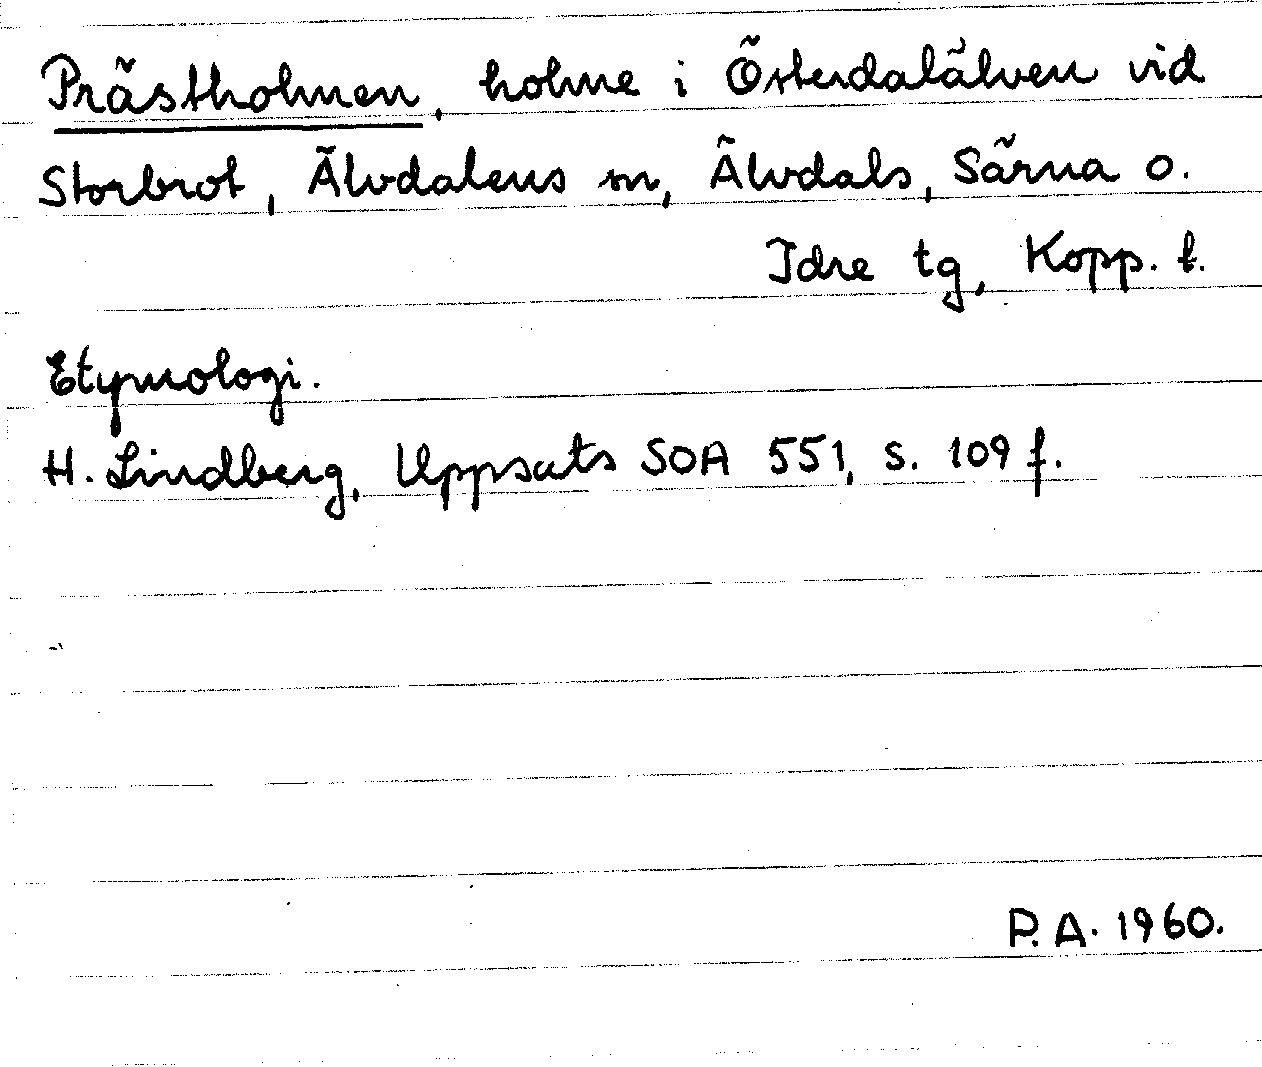 Prästholmen, holme i Österdalälven vid
Storbrot, Älvdalens sn, Älvdals, Särna o.
Idre tg, Kopp. l.
Etymologi.
H. Lindberg, Uppsats SOA 551, s. 109 f.
P.A. 1960.